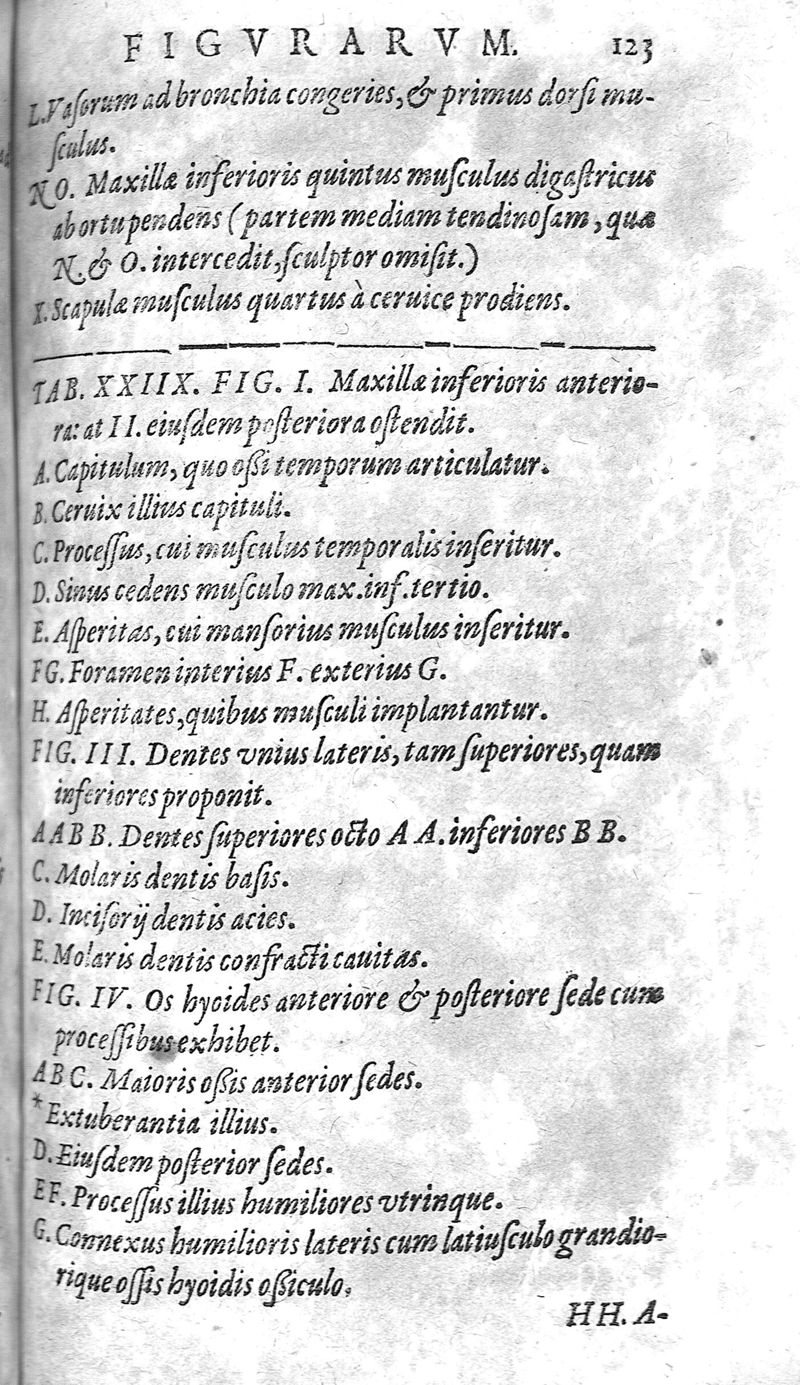 FIGVRARVM. 123
L. Vaſorum ad bronchia congeries, & primus dorſi mu-
ſculus.
N O. Maxillæ inferioris quintus muſculus digaſtricus
ab ortu pendens (partem mediam tendinoſam, quæ
N. & O. intercedit, ſculptor omiſit.)
X. Scapulæ muſculus quartus à ceruice prodiens.
TAB. XXIIX. FIG. I. Maxillæ inferioris anterio-
ra: at II. eiuſdem poſteriora oſtendit.
A. Capitulum, quo oßi temporum articulatur.
B. Ceruix illius capituli.
C. Proceſſus, cui muſculus temporalis inſeritur.
D. Sinus cedens muſculo max. inf. tertio.
E. Aſperitas, cui manſorius muſculus inſeritur.
FG. Foramen interius F. exterius G.
H. Aſperitates, quibus muſculi implantantur.
FIG. III. Dentes vnius lateris, tam ſuperiores, quam
inferiores proponit.
AABB. Dentes ſuperiores octo A A. inferiores B B.
C. Molaris dentis baſis.
D. Inciſorij dentis acies.
E. Molaris dentis confracti cauitas.
FIG. IV. Os hyoides anteriore & poſteriore ſede cum
proceſſibus exhibet.
ABC. Maioris oßis anterior ſedes.
* Extuberantia illius.
D. Eiuſdem poſterior ſedes.
EF. Proceſſus illius humiliores vtrinque.
G. Connexus humilioris lateris cum latiuſculo grandio-
rique oſſis hyoidis oßiculo.
HH. A-